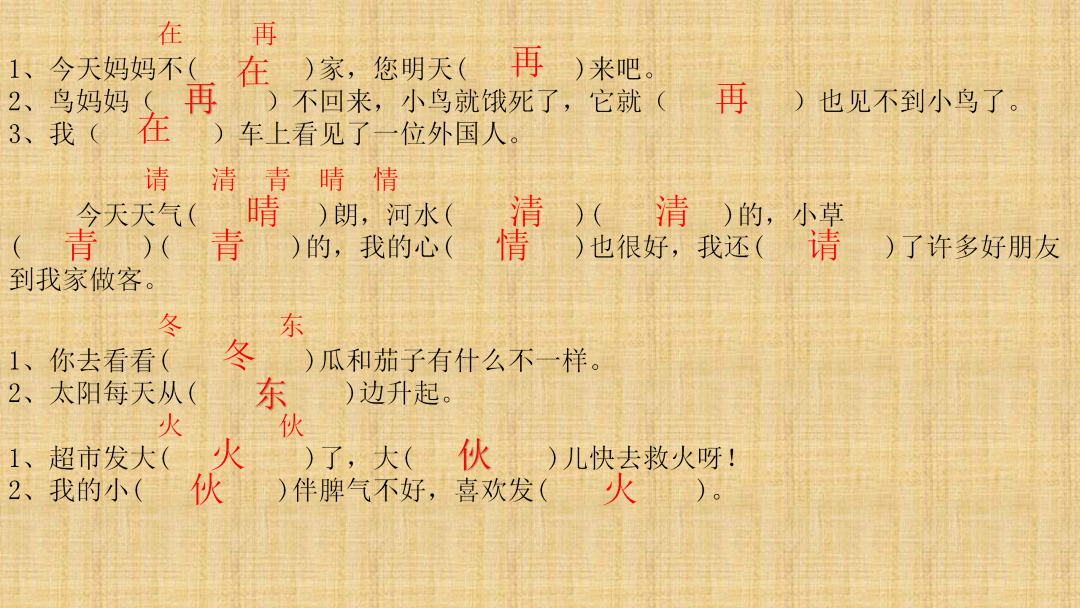 在 再
1、今天妈妈不( 在 )家，您明天( 再 )来吧。
2、鸟妈妈（ 再 ）不回来，小鸟就饿死了，它就（ 再 ）也见不到小鸟了。
3、我（ 在 ）车上看见了一位外国人。
请 清 青 晴 情
今天天气( 晴 )朗，河水( 清 )( 清 )的，小草
( 青 )( 青 )的，我的心( 情 )也很好，我还( 请 )了许多好朋友
到我家做客。
冬 东
1、你去看看( 冬 )瓜和茄子有什么不一样。
2、太阳每天从( 东 )边升起。
火 伙
1、超市发大( 火 )了，大( 伙 )儿快去救火呀！
2、我的小( 伙 )伴脾气不好，喜欢发( 火 )。